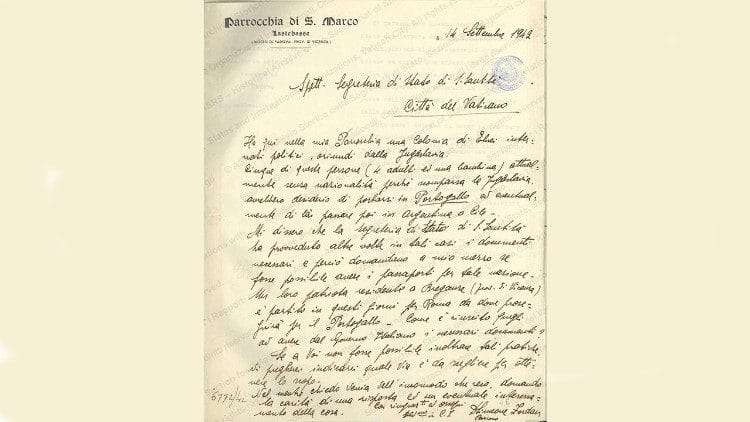 Parrocchia di S. Marco
Lastebasse
(DIOCESI DI PADOVA - PROV. DI VICENZA)
14 Settembre 1942
Spett. Segreteria di Stato di S. Santità
Città del Vaticano
Ho qui nella mia Parrocchia una colonia di Ebrei inter-
nati politici, oriundi dalla Jugoslavia.
Cinque di queste persone (4 adulti ed una bambina) attual-
mente senza nazionalità perché scomparsa la Jugoslavia
avrebbero desiderio di portarsi in Portogallo ed eventual-
mente di là passare poi in Argentina o Cile.
Mi dissero che la Segreteria di Stato di S. Santità
ha provveduto altre volte in tali casi i documenti
necessari e perciò domandano a mio mezzo se
fosse possibile avere i passaporti per tale nazione.
Un loro patriota residente a Breganze (prov. di Vicenza)
è partito in questi giorni per Roma da dove prose-
guirà per il Portogallo - Come è riuscito quegli
ad avere dal Governo Italiano i necessari documenti?
Se a Voi non fosse possibile inoltrare tali pratiche,
di pregherei indicarci quale via è da scegliere per otte-
nere lo scopo.
Nel mentre chiedo venia dell'incomodo che reco, domando
la carità di una risposta ed un eventuale interessa-
mento della cosa.
Con ringraziamenti ed ossequi
in C. J.
6772/42